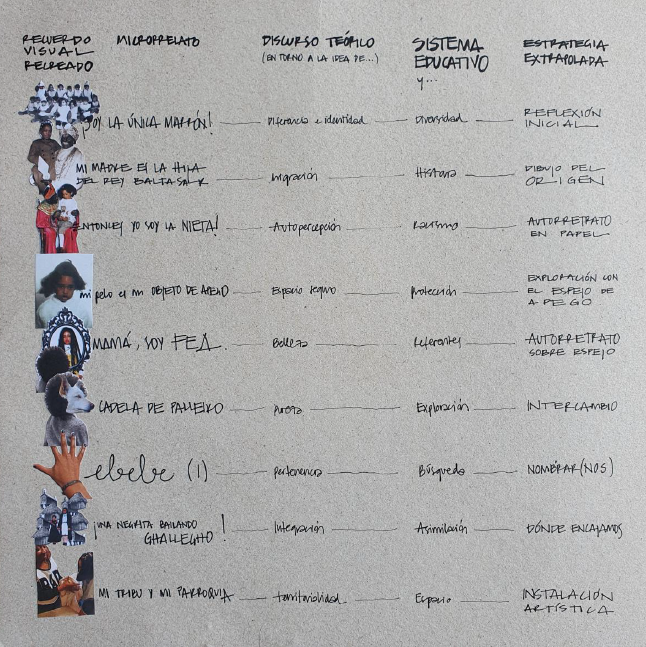 RECUERDO VISUAL RECREADO
MICRORRELATO
DISCURSO TEÓRICO
(EN TORNO A LA IDEA DE...)
SISTEMA EDUCATIVO
y...
ESTRATEGIA EXTRAPOLADA
¡SOY LA ÚNICA MARRÓN! Diferencia e identidad Diversidad REFLEXIÓN INICIAL
MI MADRE ES LA HIJA DEL REY BALTASAR Migración Historia DIBUJO DEL ORIGEN
ENTONCES YO SOY LA NIETA! Autopercepción Racismo AUTORRETRATO EN PAPEL
mi pelo es mi OBJETO DE APEGO Espacio seguro Protección EXPLORACIÓN CON EL ESPEJO DE APEGO
MAMÁ, SOY FEA Belleza Referentes AUTORRETRATO SOBRE ESPEJO
CADELA DE PALLEIRO Pureza Exploración INTERCAMBIO
ebebe (1) Pertenencia Búsqueda NOMBRAR(NOS)
¡UNA NEGRITA BAILANDO GHALLEGHO! Integración Asimilación DÓNDE ENCAJAMOS
MI TRIBU Y MI PARROQUIA territorialidad Espacio INSTALACIÓN ARTÍSTICA